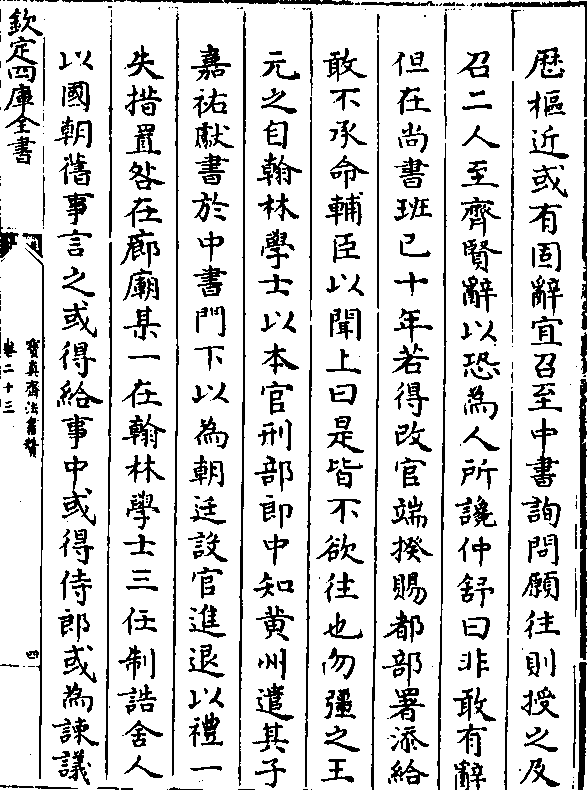 歴樞近或有固辭宜召至中書詢問願往則授之及
召二人至齊賢辭以恐為人所讒仲舒曰非敢有辭
但在尚書班已十年若得改官端揆賜都部署添給
敢不承命輔臣以聞上曰是皆不欲往也勿彊之王
元之自翰林學士以本官刑部郎中知黄州遣其子
嘉祐獻書於中書門下以為朝廷設官進退以禮一
失措置咎在廊廟某一在翰林學士三任制誥舍人
以國朝舊事言之或得給事中或得侍郎或為諫議
欽定四庫全書
寶真齋法書贊
卷二十三
四